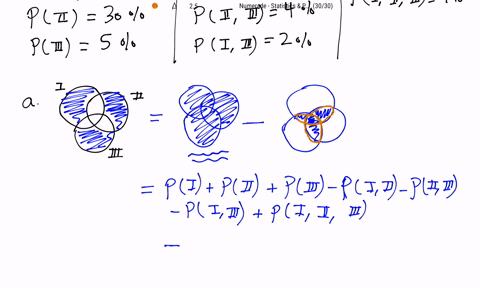 P(II) = 30%
Δ 2.5 Numerade - Statistics & P... (30/30)
P(II, III) = 4%
P(III) = 5%
P(I, III) = 2%
a. I II III = −
= P(I) + P(II) + P(III) − P(I,II) − P(II,III)
− P(I,III) + P(I, II, III)